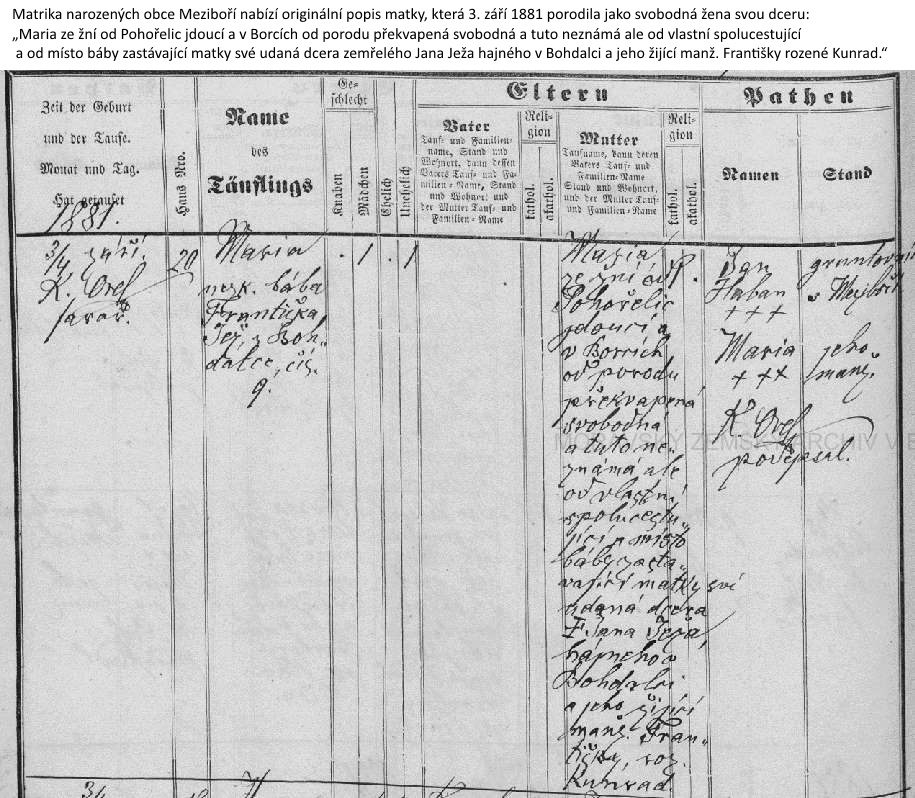 Matrika narozených obce Meziboří nabízí originální popis matky, která 3. září 1881 porodila jako svobodná žena svou dceru:
„Maria ze žní od Pohořelic jdoucí a v Borcích od porodu překvapená svobodná a tuto neznámá ale od vlastní spolucestující
a od místo báby zastávající matky své udaná dcera zemřelého Jana Ježa hajného v Bohdalci a jeho žijící manž. Františky rozené Kunrad.“
Zeit der Geburt
und der Taufe.
Monat und Tag.
Hat getauft
1881.
Haus Nro.
Name
des
Täuflings
Ge-
schlecht
Knaben
Mädchen
Ehelich
Unehelich
Eltern
Vater
Tauf- und Familien-
name, Stand und
Wohnort, dann dessen
Vaters Tauf- und Fa-
milien-Name, Stand
und Wohnort und
der Mutter Tauf- und
Familien-Name
Reli-
gion
kathol.
akathol.
Mutter
Taufname, dann deren
Vaters Tauf- und
Familien-Name
Stand und Wohnort,
und der Mutter Tauf-
und Familien-Name
Reli-
gion
kathol.
akathol.
Pathen
Namen
Stand
3/4 září
K. Orel
farář.
20
Maria
nezk. bába
Františka
Jež, z Boh-
dalce, čís.
9.
. 1 . 1
Maria
ze žní od
Pohořelic
jdoucí a
v Borcích
od porodu
překvapená
svobodná
a tuto ne-
známá ale
od vlastní
spolucestu-
jící a místo
báby zastá-
vající matky své
udaná dcera
† Jana Ježa,
hajného v
Bohdalci
a jeho žijící
manž. Fran-
tišky, roz.
Kunrad
1 .
Jan
Haban
+++
Maria
+++
K. Orel
podepsal.
gruntovní
v Meziboří
jeho
manž.
MORAVSKÝ ZEMSKÝ ARCHIV V B
3/4